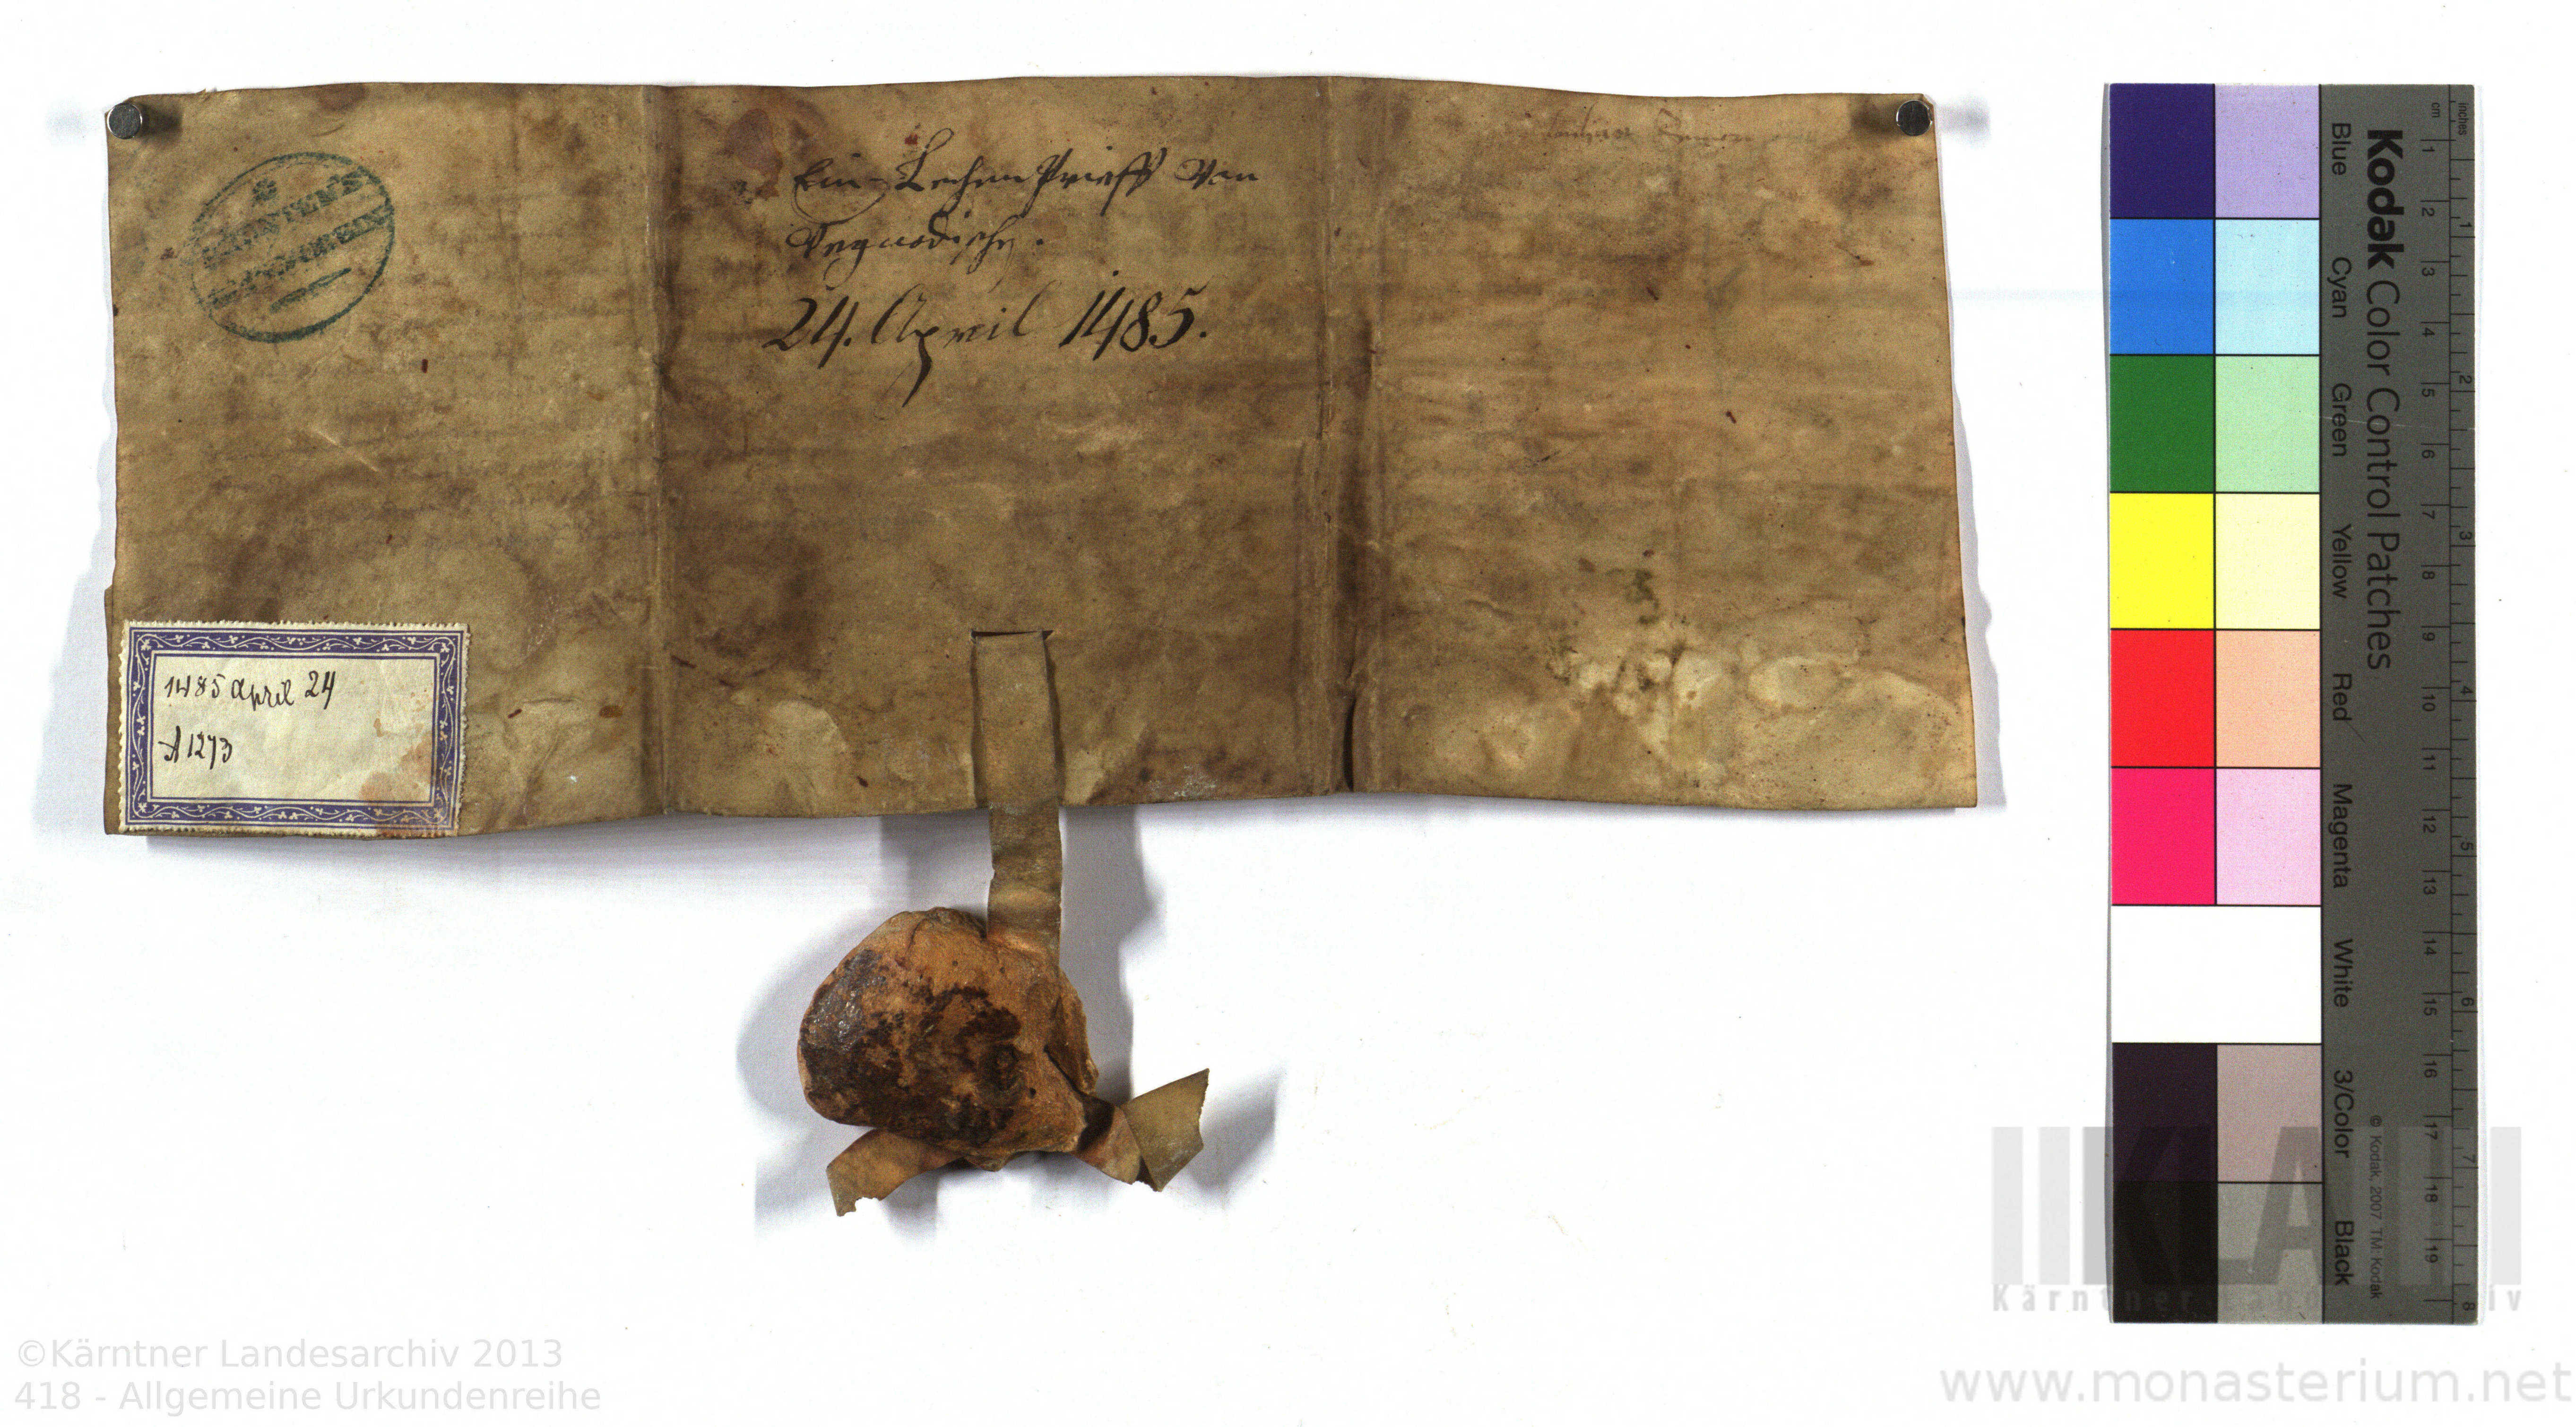 Ein Lehen Prieff Von
24. April 1485.
1485 April 24
A 1273
Kodak Color Control Patches
Blue
Cyan
Green
Yellow
Red
Magenta
White
3/Color
Black
inches
cm
1
2
3
4
5
6
7
8
9
10
11
12
13
14
15
16
17
18
19
1
2
3
4
5
6
7
8
© Kodak, 2007 TM: Kodak
KLA
©Kärntner Landesarchiv 2013
418 - Allgemeine Urkundenreihe
www.monasterium.net